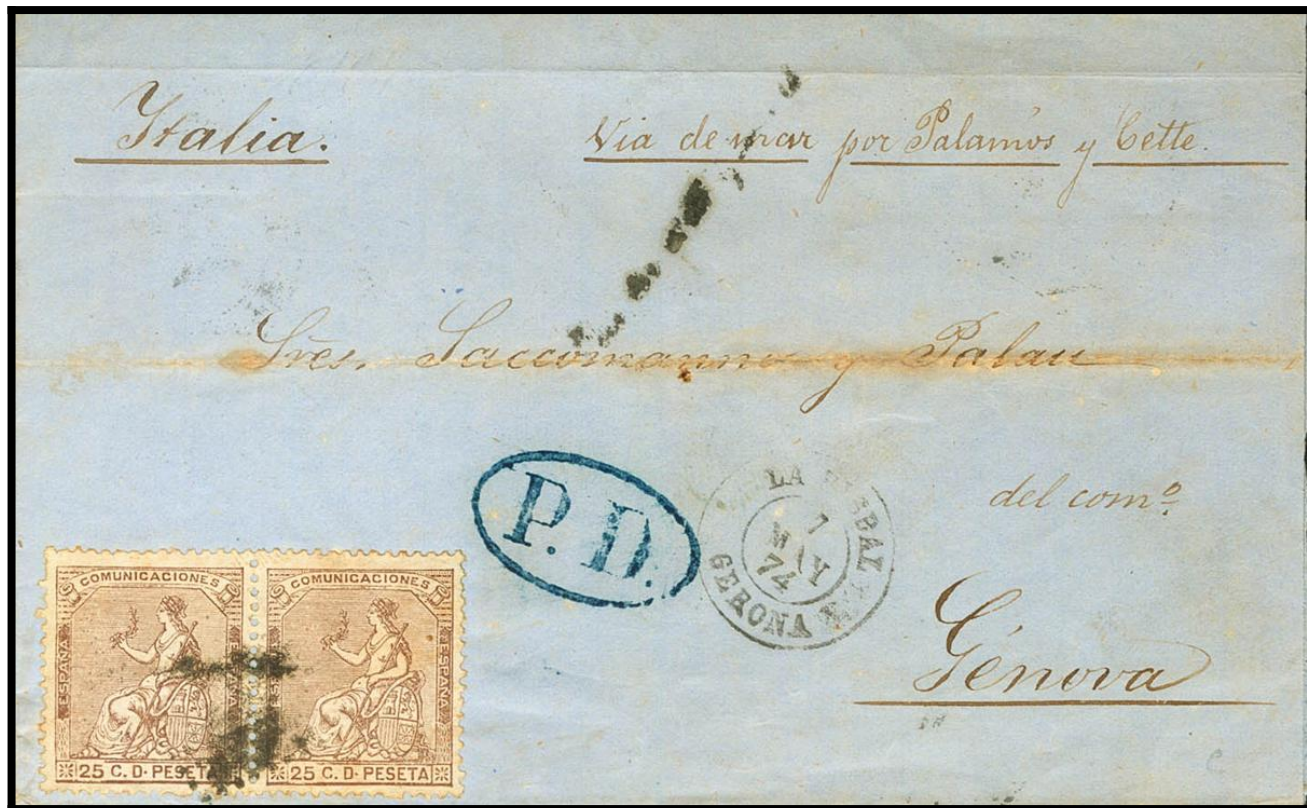 Italia.
Via de mar por Palamós y Cette.
Sres. Saccomanno y Palau
del como.
Génova
P. D.
LA BISBAL
7
MAY
74
GERONA
COMUNICACIONES
ESPAÑA
25 C. D. PESETA
COMUNICACIONES
ESPAÑA
25 C. D. PESETA